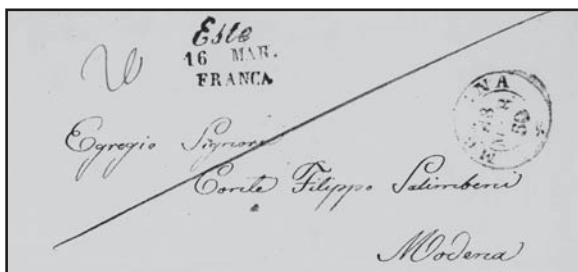 Este
16 MAR.
FRANCA
Egregio Signore
Conte Filippo Salimbeni
Modena